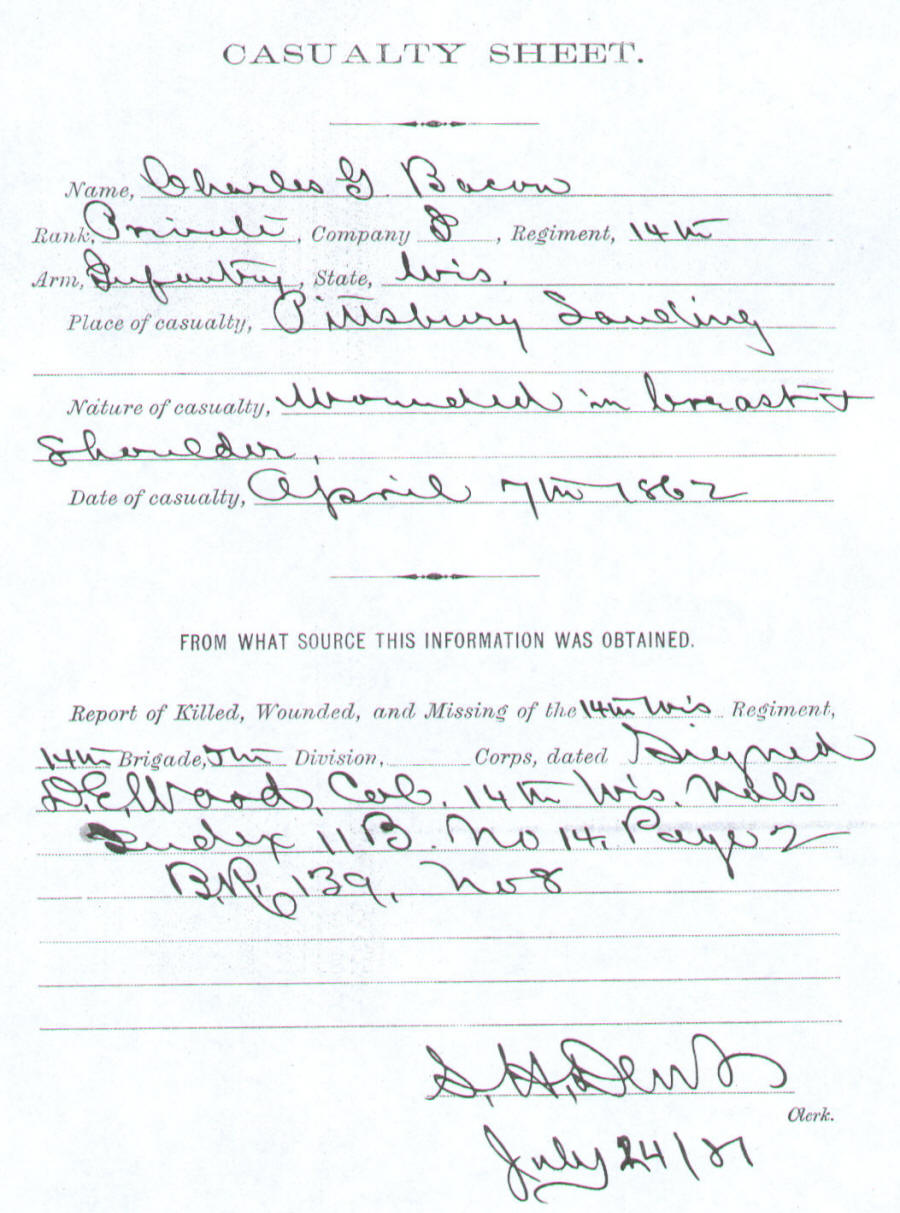 CASUALTY SHEET.
Name, Charles G Bacon
Rank, Private, Company, Regiment, 14th
Arm, Infantry, State, Wis.
Place of casualty, Pittsburg Landing
Nature of casualty, Wounded in breast &
Shoulder,
Date of casualty, April 7th 1862
FROM WHAT SOURCE THIS INFORMATION WAS OBTAINED.
Report of Killed, Wounded, and Missing of the 14th Wis Regiment,
14th Brigade, Division, Corps, dated Signed
D.E. Wood, Col. 14th Wis. Vols
Index 11 B. No 14, Page 2
B.R. 139, No 8
S. H.
Clerk.
July 24/